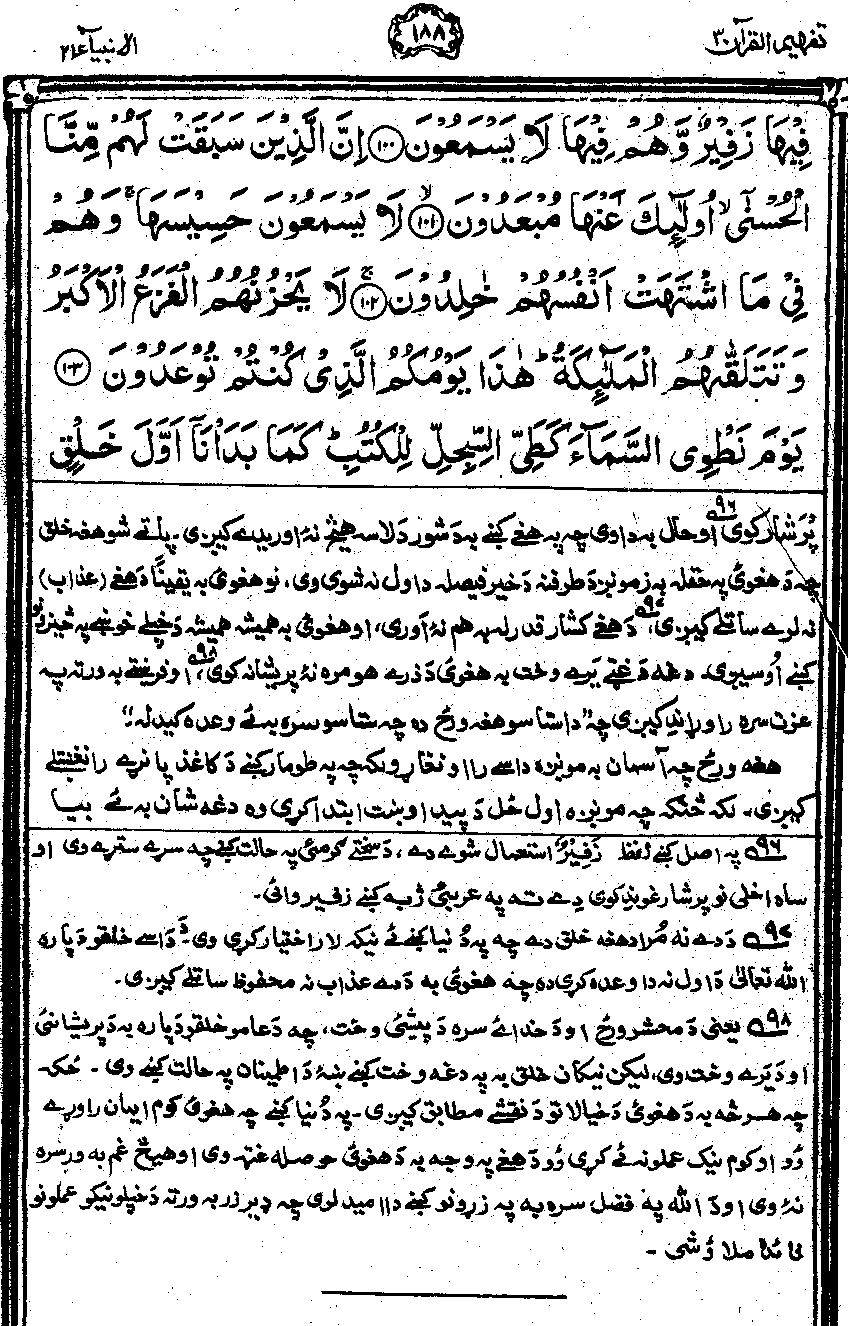 تفهیم القرآن ۳
۱۸۸
الانبیآء ۲۱
فِیْهَا زَفِیْرٌ وَّهُمْ فِیْهَا لَا یَسْمَعُوْنَ ﴿۱۰۰﴾ اِنَّ الَّذِیْنَ سَبَقَتْ لَهُمْ مِّنَّا
الْحُسْنٰۤى ۙ اُولٰٓئِكَ عَنْهَا مُبْعَدُوْنَ ﴿۱۰۱﴾ ۙ لَا یَسْمَعُوْنَ حَسِیْسَهَا ۚ وَهُمْ
فِیْ مَا اشْتَهَتْ اَنْفُسُهُمْ خٰلِدُوْنَ ﴿۱۰۲﴾ ۚ لَا یَحْزُنُهُمُ الْفَزَعُ الْاَكْبَرُ
وَتَتَلَقّٰىهُمُ الْمَلٰٓئِكَةُ ؕ هٰذَا یَوْمُكُمُ الَّذِیْ كُنْتُمْ تُوْعَدُوْنَ ﴿۱۰۳﴾
یَوْمَ نَطْوِی السَّمَآءَ كَطَیِّ السِّجِلِّ لِلْكُتُبِ ؕ كَمَا بَدَاْنَاۤ اَوَّلَ خَلْقٍ
پُرشارکوی ۹۶ اوحال به داوی چه په هغے کښے به دَ شور دَ لاسه هیڅ نۀ اوریدے کیږی۔ پاتے شو هغه خلق
چه دَ هغوئ په حقله به زمونږ دَ طرفنه دَ خیر فیصله د اول نه شوی وی، نو هغوئ به یقیناً دَ هغے (عذاب)
نه لرے ساتلے کیږی ۹۷، دَ هغے کشار قدرله به هم نۀ آوری، او هغوئ به همیشه همیشه دَ خپلے خوښے په څیزونو
کښے اُوسیږی۔ دغه دَ غټے یَرے وخت به هغوئ دَ ذرے هومره نۀ پریشانه کوی ۹۸، او فریښتے به ورته په
عزت سره راوړاندے کیږی چه "دا ستاسو هغه ورځ ده چه ستاسو سره به ئے وعده کیدله"
هغه ورځ چه آسمان به مونږه داسے رااونغاړو لکه چه په طومار کښے دَ کاغذ پانړے رانغښتلے
کیږی۔ لکه څنګه چه مونږه اول ځل دَ پیداوښت ابتدا کړی وه دغه شان به ئے بیا
۹۶ په اصل کښے لفظ زَفِیْرٌ استعمال شوے دے، دَ سختے ګرمئ په حالت کښے چه سړے ستړے وی او
ساه اخلی نو پرشارغوندکوی دے ته په عربئ ژبه کښے زفیر وائی۔
۹۷ دَ دے نه مُراد هغه خلق دے چه په دُنیا کښے ئے نیکه لار اختیار کړی وی۔ دَ داسے خلقو دَ پاره
الله تعالیٰ دَ اول نه دا وعده کړی ده چه هغوئ به دَ دے عذاب نه محفوظ ساتلے کیږی۔
۹۸ یعنی دَ محشر ورځ او دَ خدائے سره دَ پیشئ وخت، چه دَ عامو خلقو دَ پاره به دَ پریشانئ
او دَ یَرے وخت وی، لیکن نیکان خلق به په دغه وخت کښے ښۀ دَ اطمینان په حالت کښے وی۔ ځکه
چه هر څه به دَ هغوئ دَ خیالاتو دَ نقشے مطابق کیږی۔ په دُنیا کښے چه هغوئ کوم ایمان راوړے
وُو او کوم نیک عملونه ئے کړی وُو دَ هغے په وجه به دَ هغوئ حوصله غټه وی او هیڅ غم به ورسره
نۀ وی او دَ الله په فضل سره به په زړونو کښے دا امید لوی چه ډیر زر به ورته دَ خپلو نیکو عملونو
فائده ملاؤشی۔